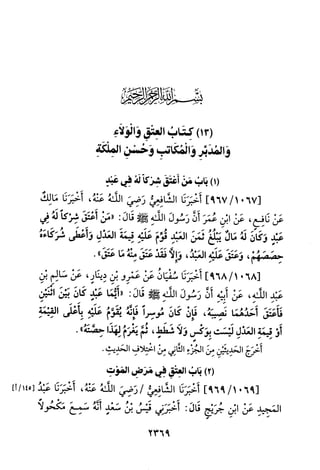 بِسْمِ اللهِ الرَّحْمَنِ الرَّحِيمِ
(١٣) كِتَابُ العِتْقِ وَالْوَلَاءِ
وَالمُدَبَّرِ وَالْمُكَاتَبِ وَحُسْنِ المِلْكَةِ
(١) بَابُ مَنْ أَعْتَقَ شِرْكاً لَهُ فِي عَبْدٍ
[٩٦٧/١٠٦٧] أَخْبَرَنَا الشَّافِعِيُّ رَضِيَ اللَّهُ عَنْهُ، أَخْبَرَنَا مَالِكٌ
عَنْ نَافِعٍ، عَنْ ابْنِ عُمَرَ أَنَّ رَسُولَ اللَّهِ ﷺ قَالَ: «مَنْ أَعْتَقَ شِرْكاً لَهُ فِي
عَبْدٍ وَكَانَ لَهُ مَالٌ يَبْلُغُ ثَمَنَ العَبْدِ قُوِّمَ عَلَيْهِ قِيمَةَ العَدْلِ وَأَعْطَى شُرَكَاءَهُ
حِصَصَهُمْ، وَعَتَقَ عَلَيْهِ العَبْدُ، وَإِلَّا فَقَدْ عَتَقَ مِنْهُ مَا عَتَقَ».
[٩٦٨/١٠٦٨] أَخْبَرَنَا سُفْيَانُ عَنْ عَمْرِو بْنِ دِينَارٍ، عَنْ سَالِمِ بْنِ
عَبْدِ اللَّهِ، عَنْ أَبِيْهِ أَنَّ رَسُولَ اللَّهِ ﷺ قَالَ: «أَيُّمَا عَبْدٍ كَانَ بَيْنَ اثْنَيْنِ
فَأَعْتَقَ أَحَدُهُمَا نَصِيبَهُ، فَإِنْ كَانَ مُوسِراً فَإِنَّهُ يُقَوَّمُ عَلَيْهِ بِأَعْلَى القِيْمَةِ
أَوْ قِيمَةِ العَدْلِ لَيْسَتْ بِوَكْسٍ وَلَا شَطَطٍ، ثُمَّ يَغْرَمُ لِهَذَا حِصَّتَهُ».
أَخْرَجَ الحَدِيثَيْنِ مِنَ الجُزْءِ الثَّانِي مِنَ اخْتِلَافِ الحَدِيثِ.
(٢) بَابُ العِتْقِ فِي مَرَضِ المَوْتِ
[٩٦٩/١٠٦٩] أَخْبَرَنَا الشَّافِعِيُّ / رَضِيَ اللَّهُ عَنْهُ، أَخْبَرَنَا عَبْدُ [١٤٥/أ]
المَجِيدِ عَنْ ابْنِ جُرَيْجٍ قَالَ: أَخْبَرَنِي قَيْسُ بْنُ سَعْدٍ أَنَّهُ سَمِعَ مَكْحُولاً
٢٣٦٩